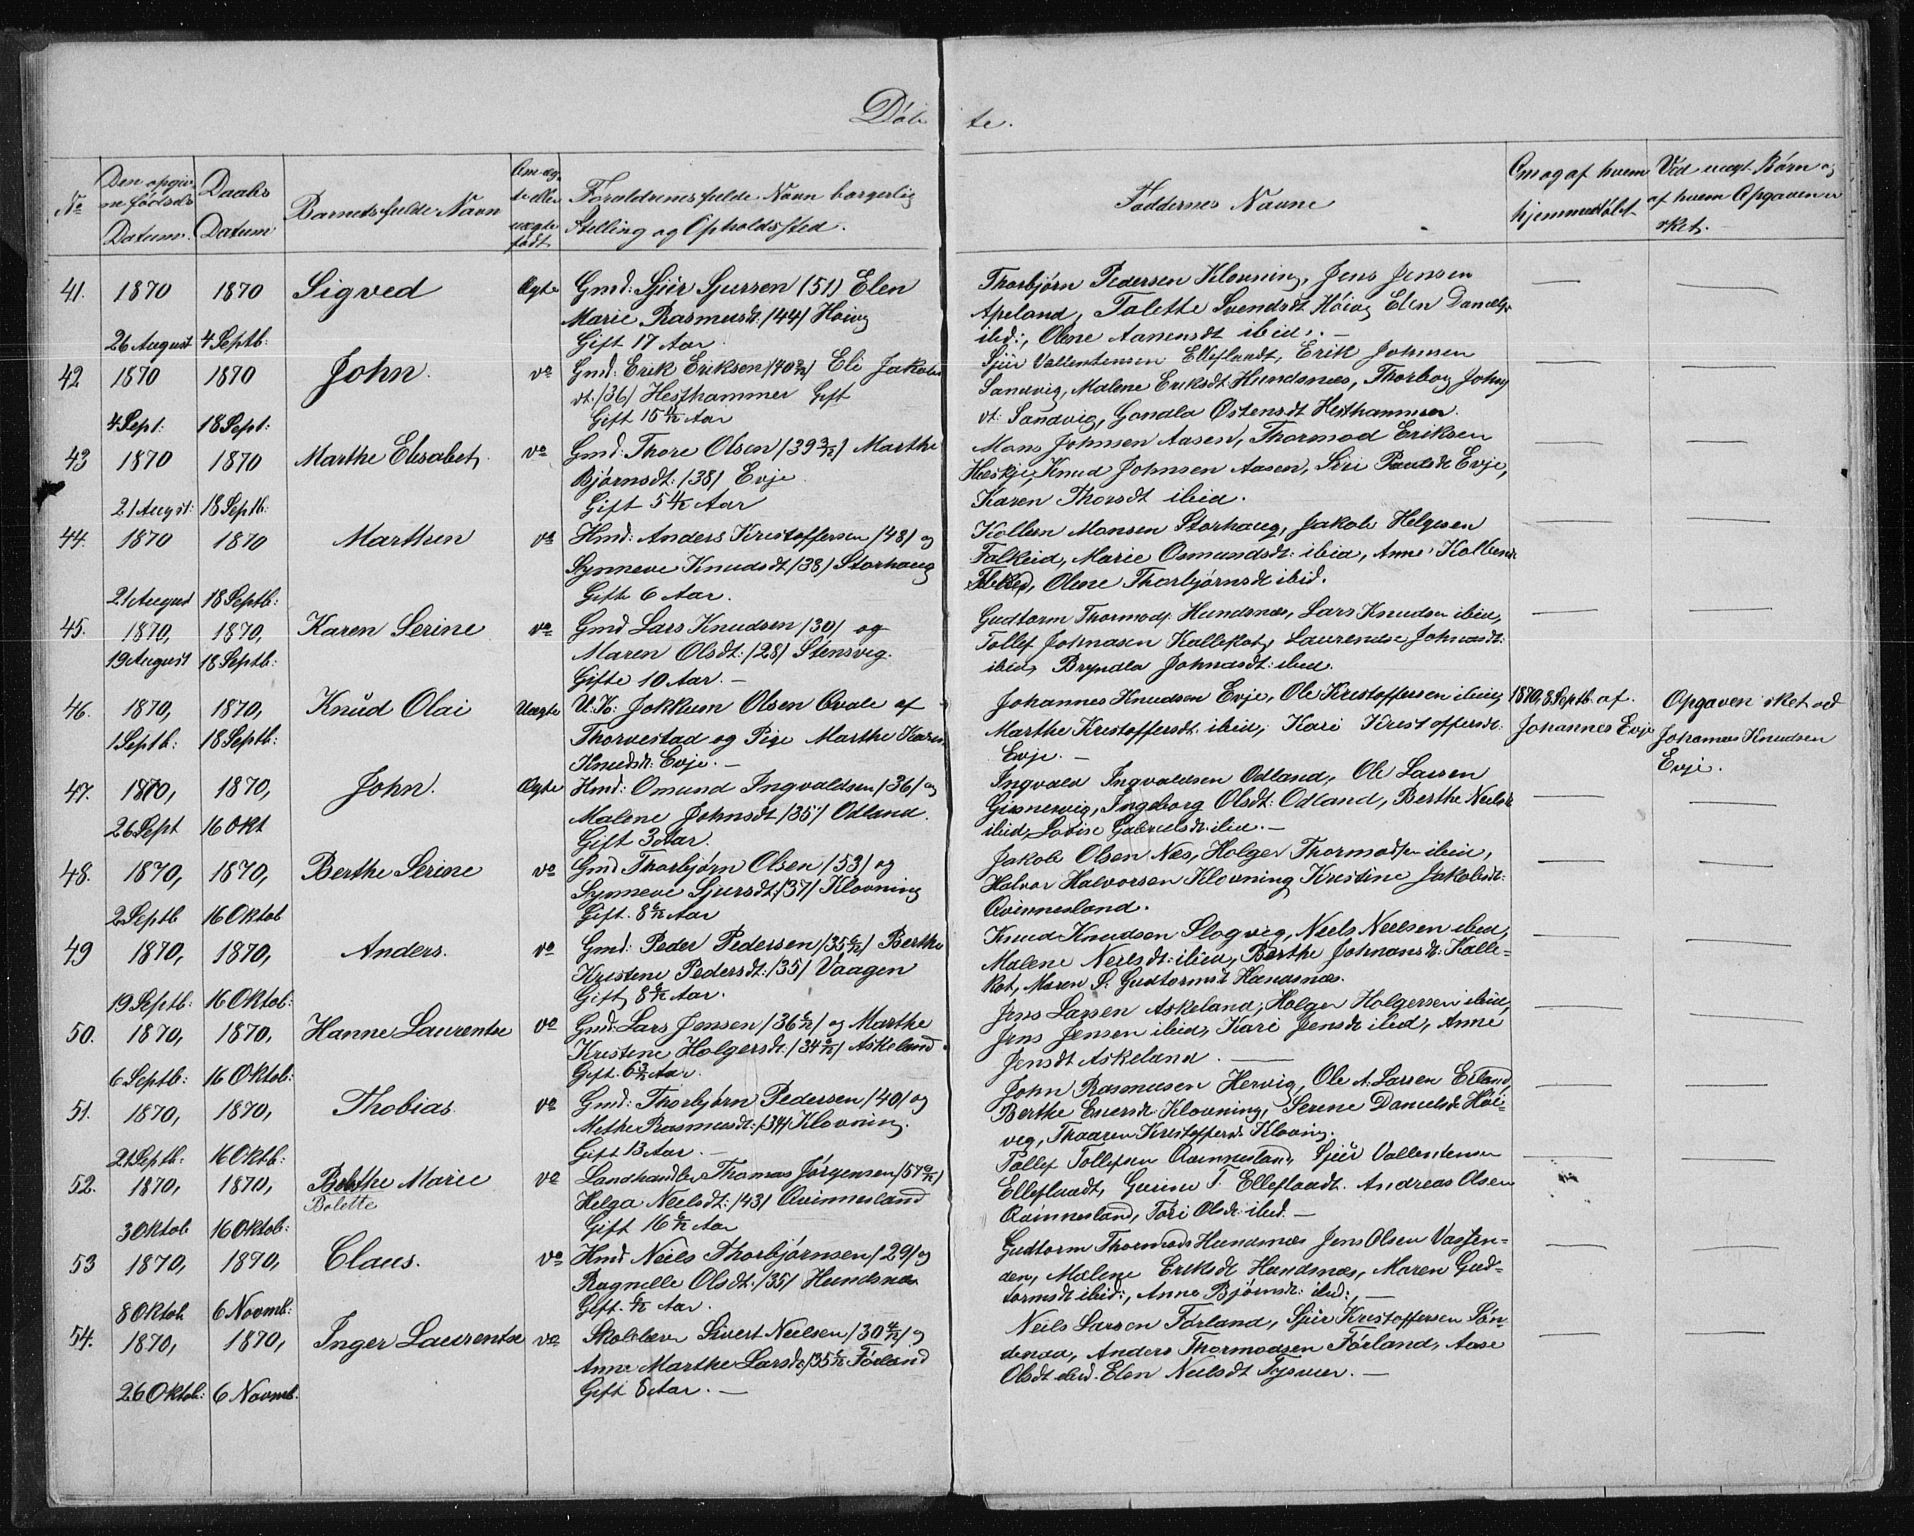 Døbte.
No
Den opgivne fødsels Datum.
Daabs Datum
Barnets fulde Navn
Om ægte eller uægte født
Forældrenes fulde Navn borgerlig Stilling og Opholdssted.
Faddernes Navne
Om og af hvem hjemmedøbt
Ved uægt. Børn og af hvem Opgaven er sket.
41. 1870 26 August 1870 4 Septb: Sigved Ægte
Gmd: Sjur Sjursen (51) Elen
Marie Rasmusdt: /44/ Høivg
Gift 17 Aar.
Thorbjørn Pedersen Klovning, Jens Jensen
Apeland, Talette Svendsdt Høivg Elen Danielsdt
ibid:, Olene Aanensdt ibid:. —
42 1870 4 Sept: 1870 18 Sept: John. do
Gmd: Erik Eriksen /40 2/12/ Eli Jakobs
dt: /36/ Hesthammer Gift
Gift 15 6/12 Aar
Sjur Vallentensen Elleflaadt, Erik Johnsen
Sandvig, Malene Eriksdt Hundsnæs, Thorbor Johns
dt: Sandvig, Gondla Ostensdt Hesthammer.
43 1870 21 August: 1870 18 Septb: Marthe Elisabet, do
Gmd: Thore Olsen /39 3/12/ Marthe
Bjørnsdt: /38/ Evje.
Gift 5 4/12 Aar
Mons Johnsen Aasen, Thormod Eriksen
Heskje, Knud Johnsen Aasen, Siri Paulsdt Evje,
Karen Thorsdt ibid.
44. 1870 21 August 1870 18 Septb: Marthen do
Hmd: Anders Kristoffersen /48/ og
Synneve Knudsdt /38/ Storhaug
Gift 6 Aar.
Kolben Monsen Storhaug, Jakob Helgesen
Falkeid, Marie Osmundsdt: ibid, Anne Kolbensdt
ibid, Olene Thorbjørnsdt ibid.
45. 1870, 19 August 1870, 18 Septb: Karen Serine do
Gmd Lars Knudsen /30/ og
Maren Olsdt: /28/ Stensvig.
Gifte 10 Aar. —
Gudtorm Thormods: Hundsnæs, Lars Knudsen ibid,
Tollef Johnasen Kallekot, Laurendse Johnasdt:
ibid, Bryndla Johnasdt: ibid.
46. 1870, 1 Septb: 1870, 18 Septb: Knud Olai Uægte
U.K: Jokkum Olsen Qvale af
Thorvestad og Pige Marthe Karin
Knudsdt: Evje. —
Johannes Knudsen Evje, Ole Kristoffersen ibid,
Marthe Kristoffersdt: ibid, Kari Kristoffersdt:
Evje. —
1870, 8 Septb. af Johannes Evje
Opgaven sket ved
Johannes Knudsen
Evje.
47. 1870, 26 Sept 1870, 16 Okt John. Ægte
Hmd: Omund Ingvaldsen /36/ og
Malene Johnsdt /35/ Odland.
Gift 3 Aar.
Ingvald Ingvaldsen Odland, Ole Larsen
Ginnervig, Ingeborg Olsdt: Odland, Berthe Neelsdt
ibid, Lovise Gabrielsdt: ibid. —
48. 1870, 2 Septb 1870, 16 Oktob Berthe Serine do
Gmd Thorbjørn Olsen /53/ og
Synneve Sjursdt: /37/ Klovning
Gift. 8 6/12 Aar
Jakob Olsen Næs, Holger Thormodsen ibid,
Halvor Halvorsen Klovning Kristine Jakobsdt:
Qvinnesland.
49 1870, 19 Septb: 1870, 16 Oktob: Anders. do
Gmd: Peder Pedersen /35 6/12/ Berthe
Kristene Pedersdt: /35/ Vaagen
Gift, 8 6/12 Aar.
Knud Knudsen Slogvig, Neels Neelsen ibid,
Malene Neelsdt: ibid, Berthe Johnansdt: Kalle-
kot, Maren S. Gudtormsdt Hundsnæs.
50. 1870, 6 Septb: 1870, 16 Oktob: Hanne Laurentse do
Gmd: Lars Jensen /36 6/12/ og Marthe
Kristine Holgersdt: /34 6/12/ Askeland.
Gift. 6 3/12 Aar.
Jens Larsen Askeland, Holger Holgersen ibid,
Jens Jensen ibid, Kari Jensdt ibid, Anne
Jensdt Askeland.
51. 1870, 21 Septb: 1870, 16 Oktb: Thobias. do
Gmd: Thorbjørn Pedersen /40/ og
Methe Rasmusdt: /34/ Klovning.
Gift 13 Aar. —
John Rasmusen Hervig, Ole A. Larsen Erland,
Berthe Enersdt: Klovning, Serine Danielsdt Høi-
vig, Thaaren Kristoffersdt Kloving.
52. 1870, 3 Oktob 1870, 16 Oktob: Bolthe Marie Bolette do
Landhandler Thomas Jørgensen /57 6/12/
Helga Neelsdt: /43/ Qvinnesland
Gift 16 6/12 Aar
Tollef Tollefsen Qvinnesland, Sjur Vallentensen
Elleflaadt, Gurine T. Elleflaadt. Andreas Olsen
Qvinnesland, Tori Olsdt: ibid. —
53 1870, 8 Oktob 1870, 6 Novmb: Claus. do
Hmd Neils Thorbjørnsen /29/ og
Ragnelle Olsdt: /35/ Hundsnæs
Gift. 6/12 Aar.
Gudtorm Thormods Hundsnæs Jens Olsen Vasten-
den, Malene Eriksdt Hundsnæs, Maren Gud-
tormsdt ibid:, Anne Bjørnsdt: ibid:, —
54. 1870, 26 Oktob: 1870, 6 Novmb. Inger Laurentse do
Skolelærer Sivert Neilsen /30 4/12/ og
Anne Marthe Larsdt /35 6/12 Førland
Gift 8 Aar. —
Neils Larsen Førland, Sjur Kristoffersen Søn-
denaa, Anders Thormodsen Førland, Aase
Olsdt ibid. Elen Neilsdt Tysvær. —